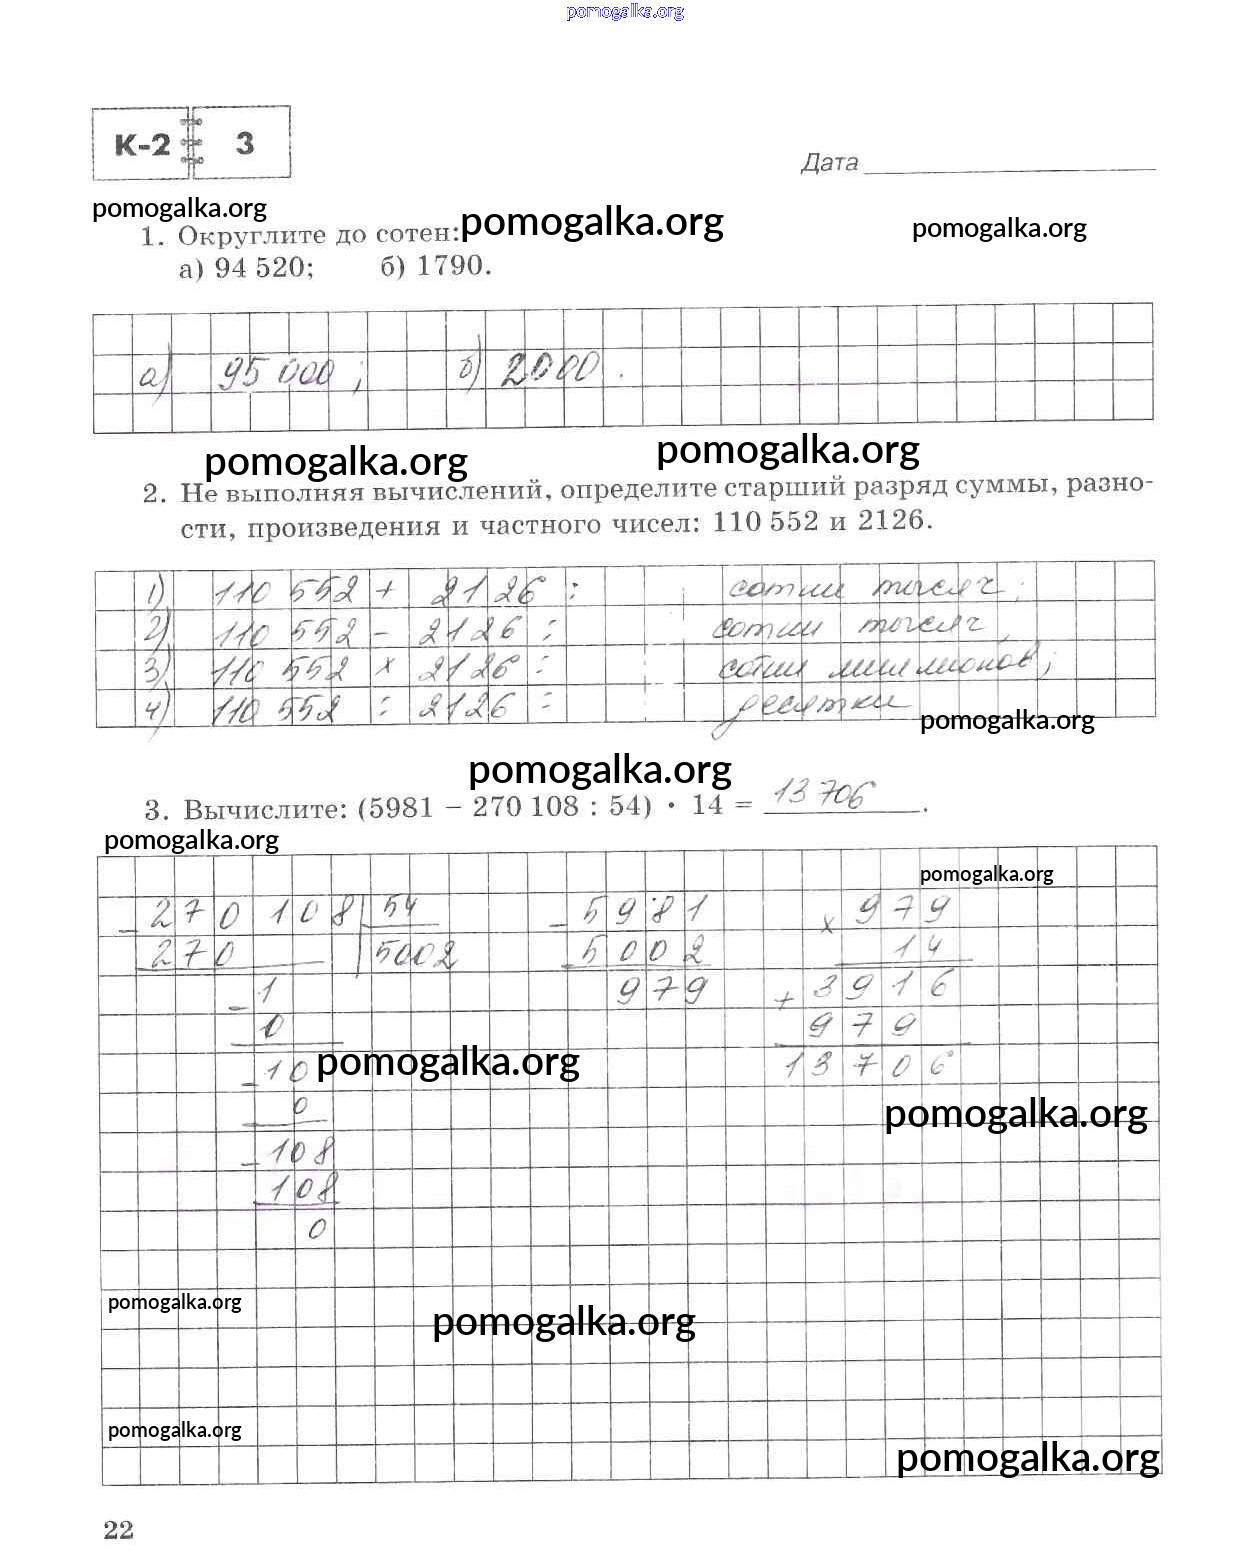 pomogalka.org
К-2 3
Дата
pomogalka.org pomogalka.org pomogalka.org
1. Округлите до сотен:
а) 94 520; б) 1790.
а) 95 000; б) 2000.
pomogalka.org pomogalka.org
2. Не выполняя вычислений, определите старший разряд суммы, разно-
сти, произведения и частного чисел: 110 552 и 2126.
1) 110 552 + 2126 : сотни тысяч;
2) 110 552 - 2126 : сотни тысяч,
3) 110 552 x 2126 : сотни миллионов;
4) 110 552 : 2126 : десятки
pomogalka.org
pomogalka.org
3. Вычислите: (5981 – 270 108 : 54) · 14 = 13 706.
pomogalka.org
pomogalka.org
- 270 108 54 - 5981 x 979
270 5002 5002 14
- 1 979 + 3916
0 979
- 10 13706
pomogalka.org
0
pomogalka.org
- 108
108
0
pomogalka.org
pomogalka.org
pomogalka.org
pomogalka.org
22